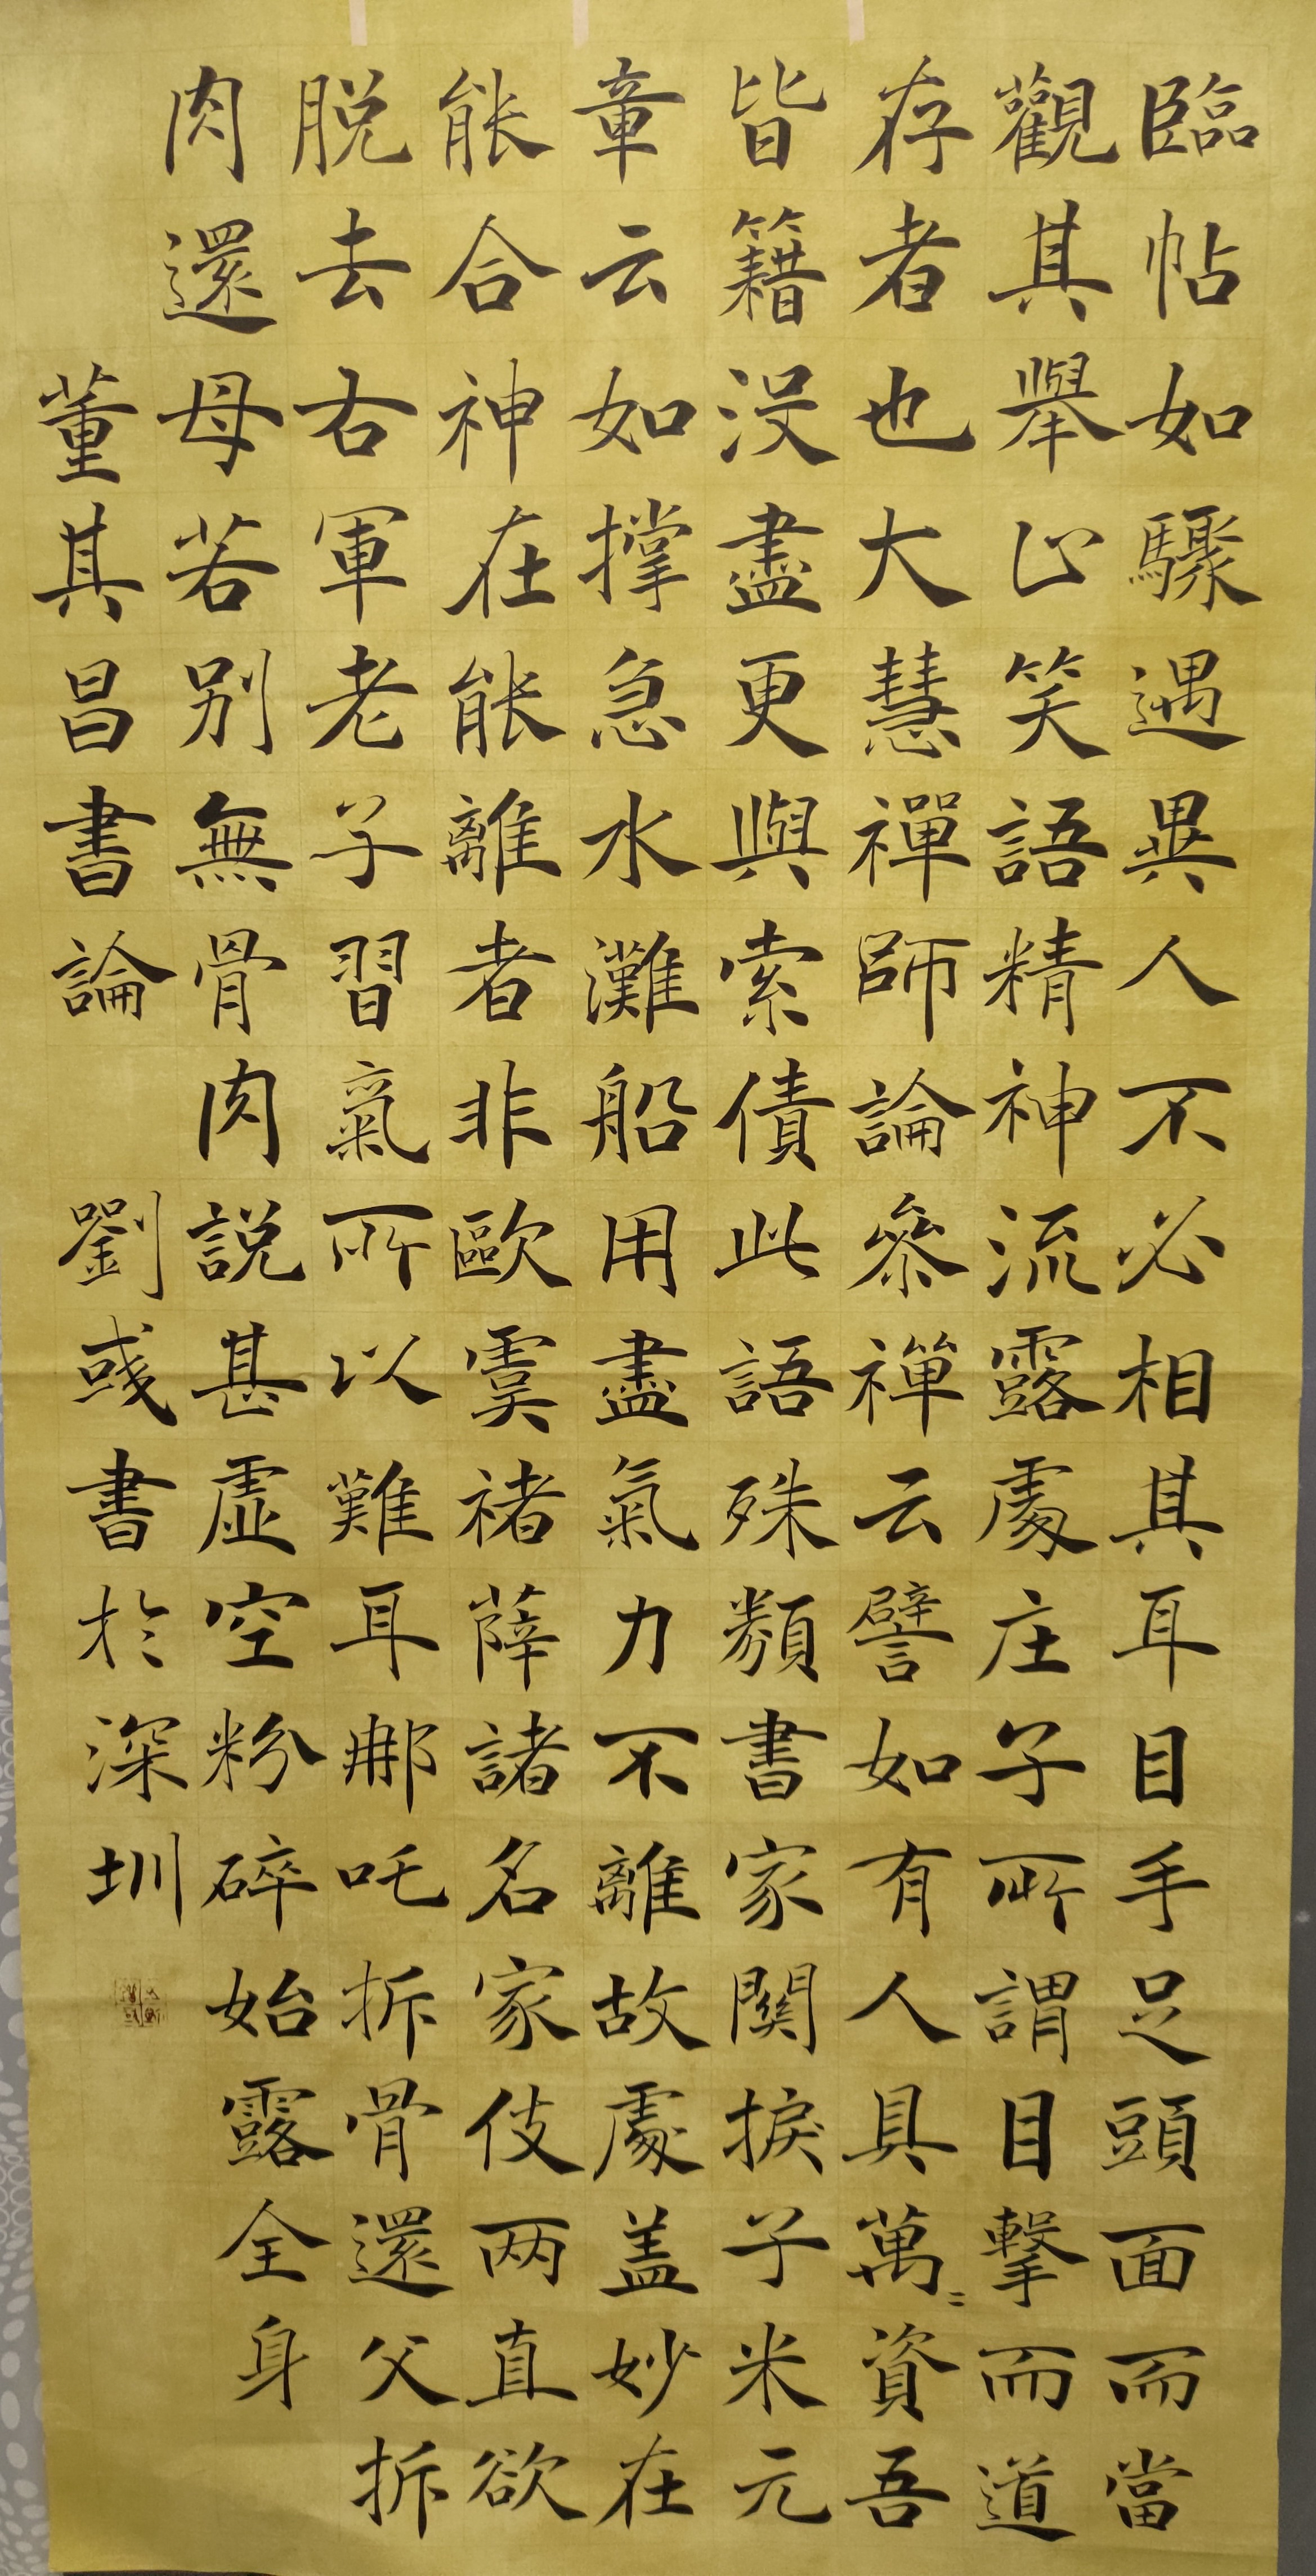 臨帖如驟遇異人不必相其耳目手足頭面而當
觀其舉止笑語精神流露處庄子所謂目擊而道
存者也大慧禪師論參禪云譬如有人具萬〻資吾
皆籍没盡更與索債此語殊類書家關捩子米元
章云如撑急水灘船用盡氣力不離故處盖妙在
能合神在能離者非歐虞褚薛諸名家伎两直欲
脱去右軍老子習氣所以難耳那吒拆骨還父拆
肉還母若别無骨肉説甚虚空粉碎始露全身
董其昌書論
劉彧書於深圳